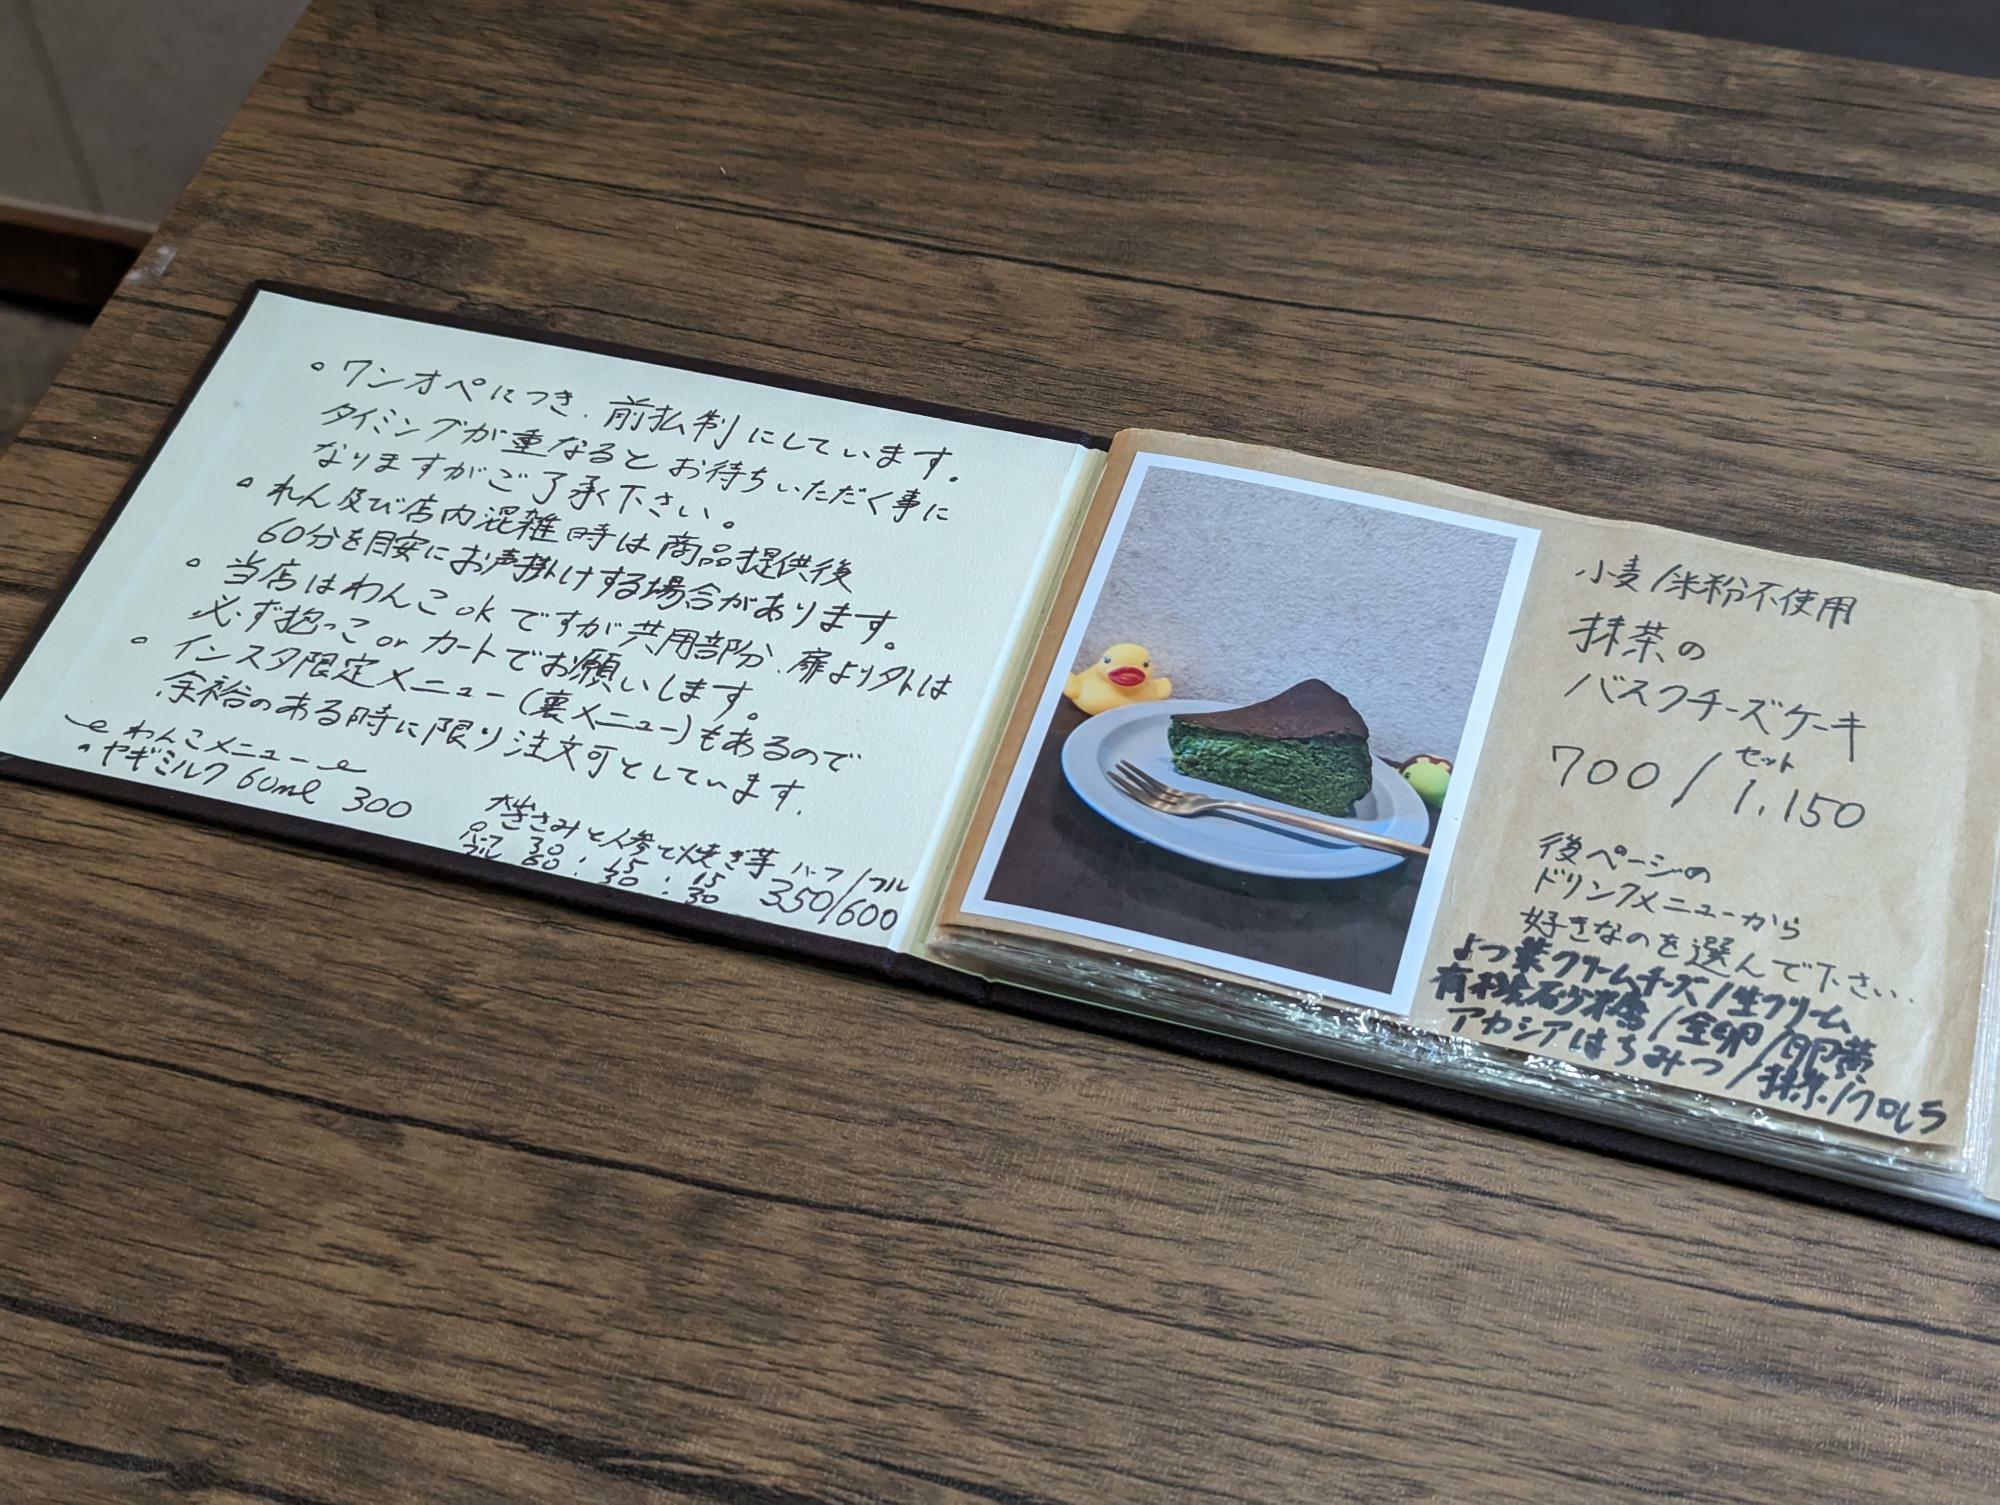 。ワンオペにつき、前払制にしています。
タイミングが重なるとお待ちいただく事に
なりますがご了承下さい。
。れん及び店内混雑時は商品提供後
60分を目安にお声掛けする場合があります。
。当店はわんこokですが共用部分、扉より外は
必ず抱っこorカートでお願いします。
。インスタ限定メニュー(裏メニュー)もあるので
余裕のある時に限り注文可としています。
わんこメニュー
ヤギミルク60ml 300
ささみと人参と焼き芋 ハーフ/フル
ハーフ 30 : 15 : 15 350/600
フル 60 : 30 : 30
小麦/米粉不使用
抹茶の
バスクチーズケーキ
セット
700/1,150
後ページの
ドリンクメニューから
好きなのを選んで下さい.
よつ葉クリームチーズ/生クリーム
有機砂糖/全卵/卵黄
アカシアはちみつ/抹茶/クロレラ